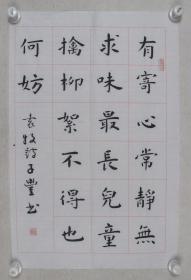 有寄心常靜無
求味最長兒童
擒柳絮不得也
何妨
袁牧詩子豐书